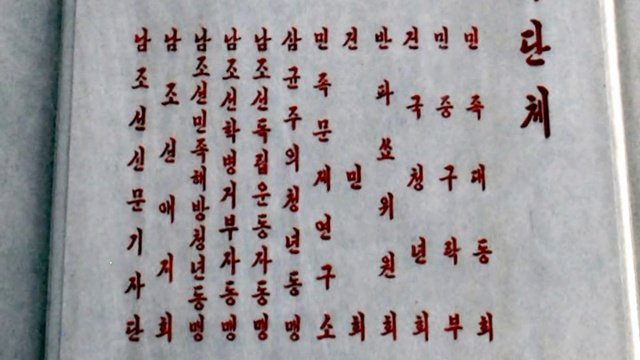 단체
민족대동회
민중구락부
건국청년회
반파쑈위원회
건민회
민족문제연구소
삼균주의청년동맹
남조선독립운동자동맹
남조선학병거부자동맹
남조선민족해방청년동맹
남조선애지회
남조선신문기자단